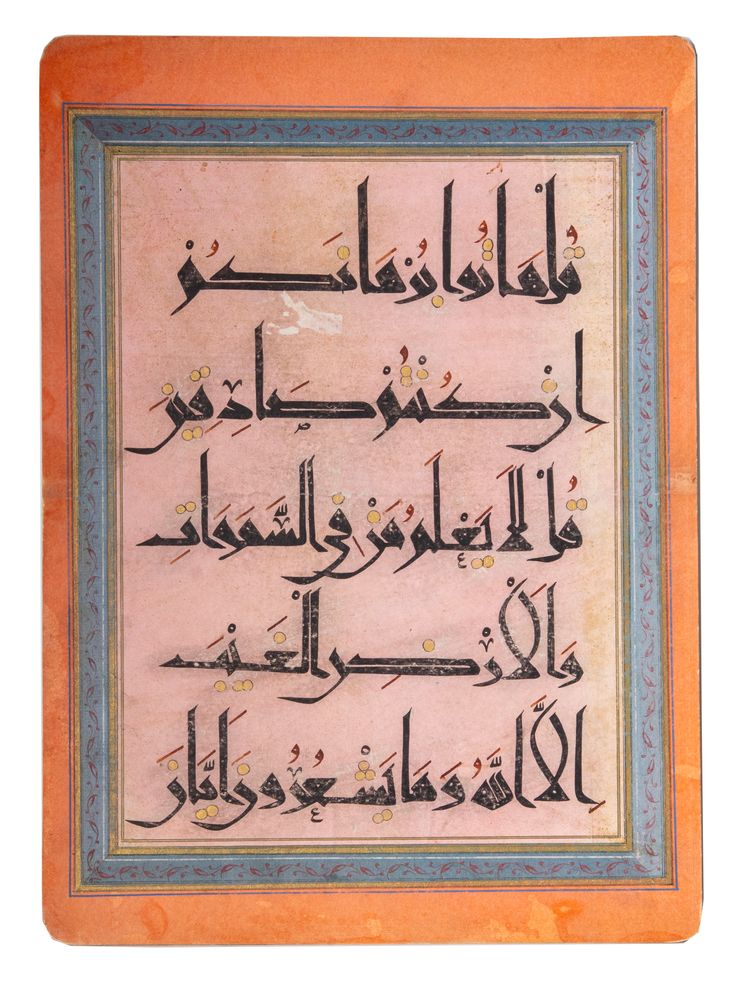 قُلْ هَاتُوا بُرْهَانَكُمْ
اِنْ كُنْتُمْ صَادِقِينَ
قُلْ لَا يَعْلَمُ مَنْ فِي السَّمَوَاتِ
وَالْاَرْضِ الْغَيْبَ
اِلَّا اللَّهُ وَمَا يَشْعُرُونَ اَيَّانَ